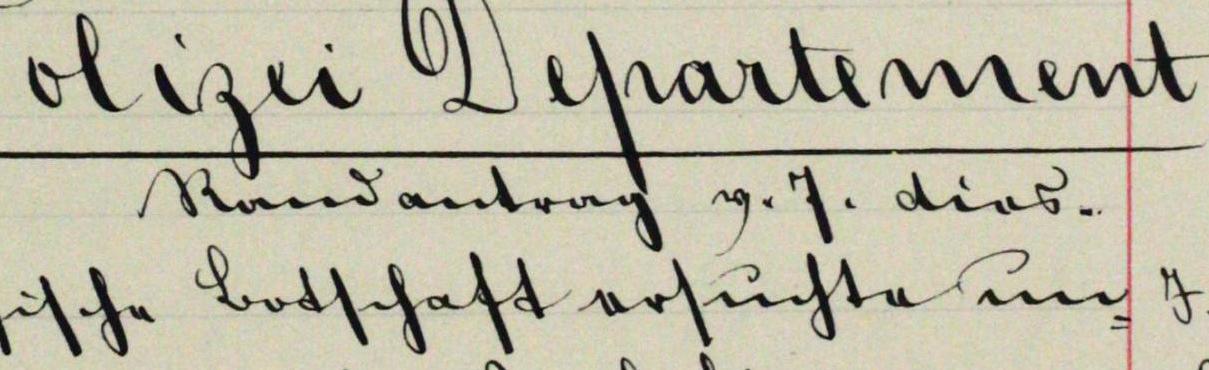 olizei Departement
Randantrag v. 7. dies.
sische Botschaft ersuchte un=